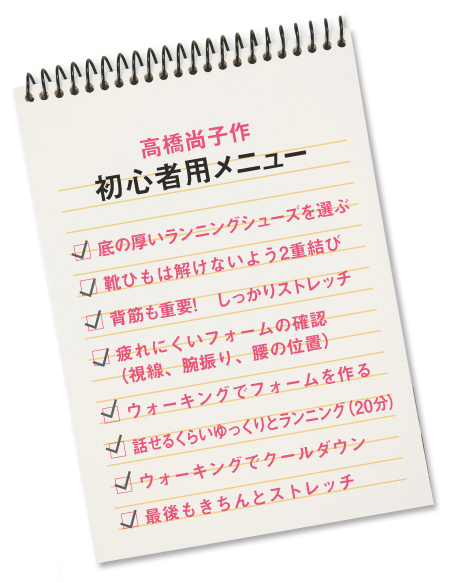 高橋尚子作
初心者用メニュー
底の厚いランニングシューズを選ぶ
靴ひもは解けないよう2重結び
背筋も重要! しっかりストレッチ
疲れにくいフォームの確認
(視線、腕振り、腰の位置)
ウォーキングでフォームを作る
話せるくらいゆっくりとランニング(20分)
ウォーキングでクールダウン
最後もきちんとストレッチ